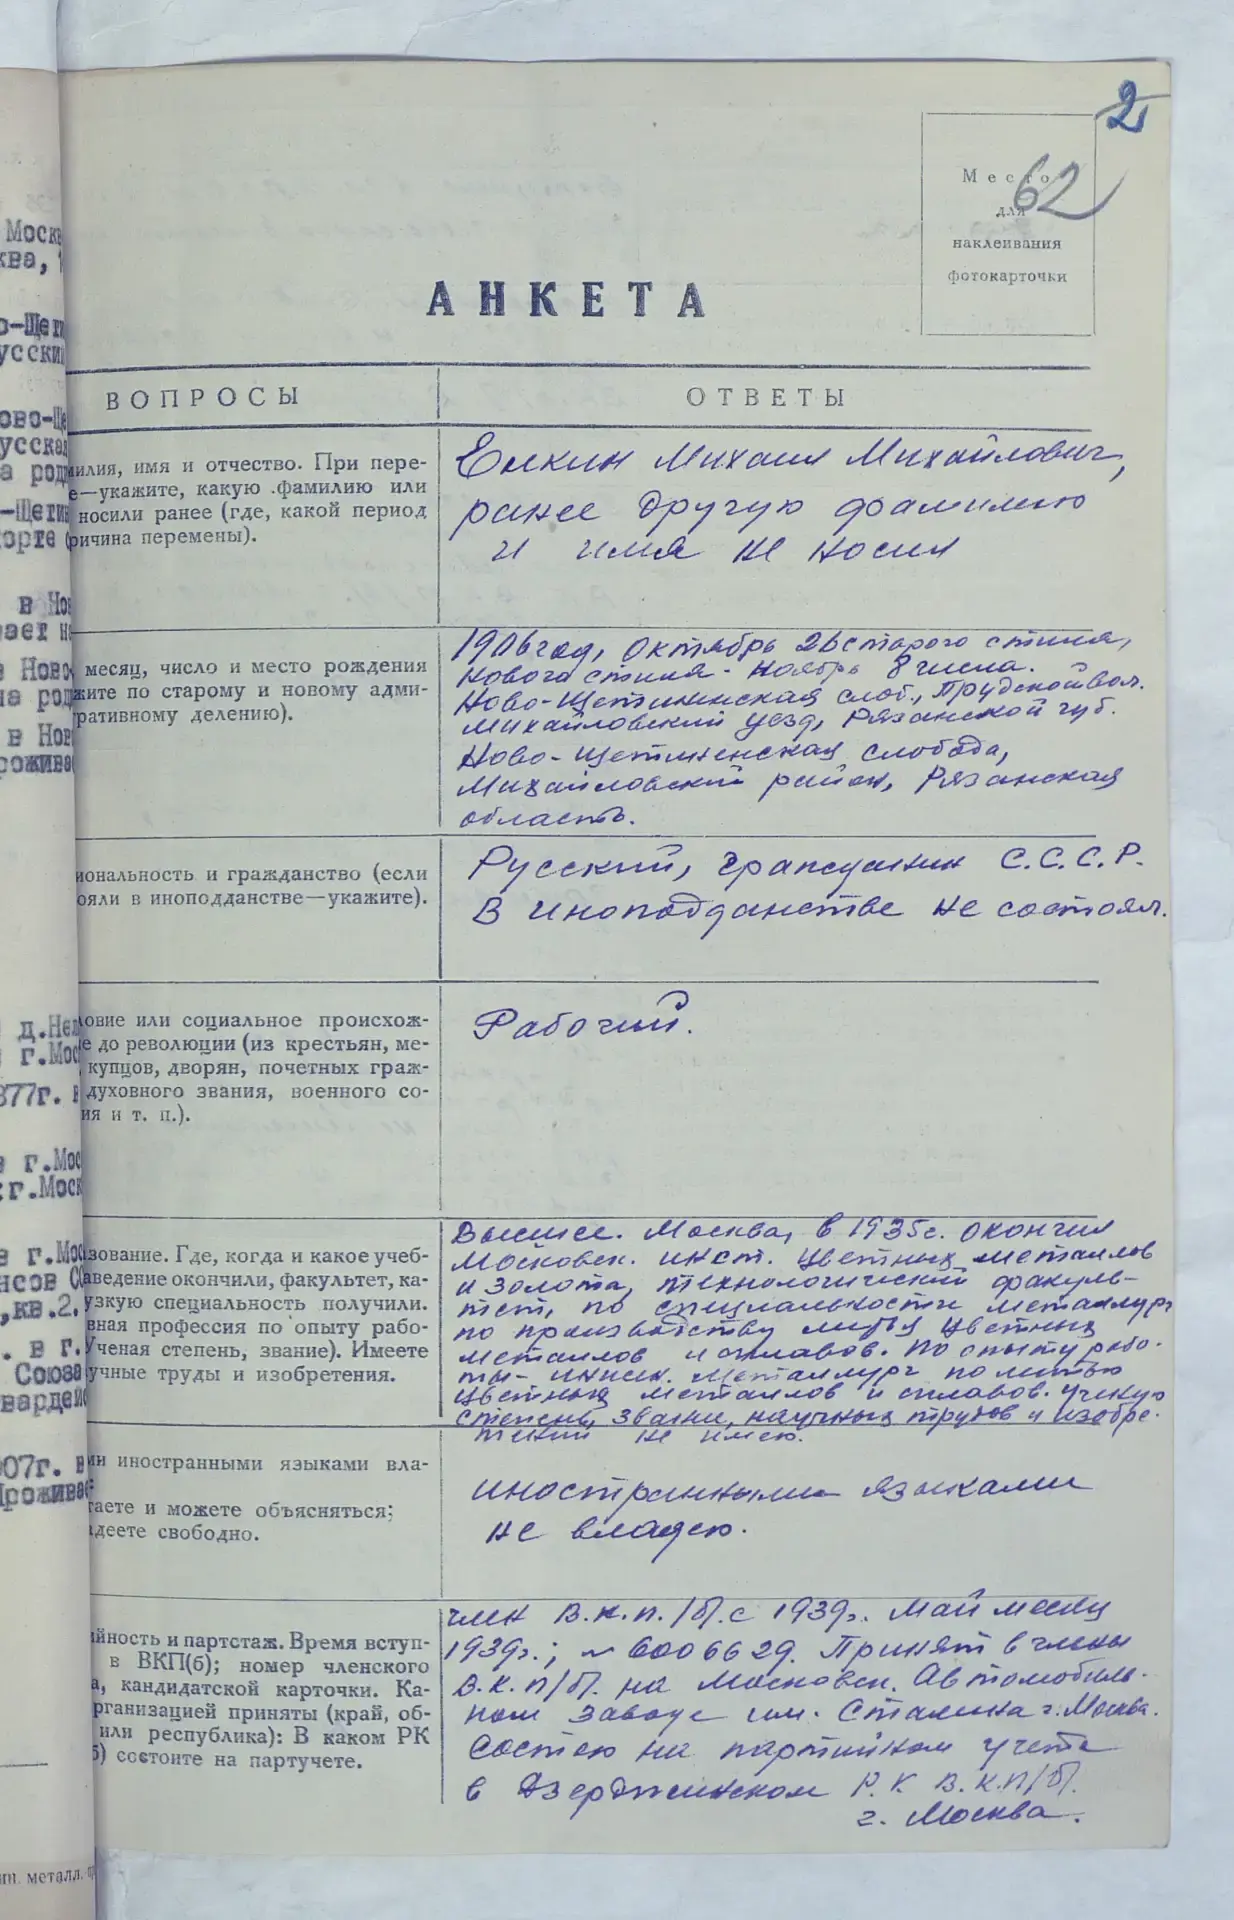 2
62
Место
для
наклеивания
фотокарточки
АНКЕТА
ВОПРОСЫ
ОТВЕТЫ
милия, имя и отчество. При пере-
е—укажите, какую фамилию или
носили ранее (где, какой период
ричина перемены).
Елкин Михаил Михайлович,
ранее другую фамилию
и имя не носил
месяц, число и место рождения
жите по старому и новому адми-
ративному делению).
октябрь 26 старого стиля,
нового стиля - ноябрь 8 числа.
Ново-Щетининская слоб., Прудской вол.
Михайловский уезд, Рязанской губ.
Ново-Щетининская слобода,
Михайловский район, Рязанская
область.
иональность и гражданство (если
ояли в иноподданстве—укажите).
Русский, гражданин С.С.С.Р.
В иноподданстве не состоял.
ловие или социальное происхож-
е до революции (из крестьян, ме-
купцов, дворян, почетных граж-
духовного звания, военного со-
ия и т. п.).
Рабочий.
зование. Где, когда и какое учеб-
аведение окончили, факультет, ка-
узкую специальность получили.
вная профессия по опыту рабо-
Ученая степень, звание). Имеете
учные труды и изобретения.
Высшее. Москва, в 1935г. окончил
Московск. инст. цветных металлов
и золота, технологический факуль-
тет, по специальности металлург
по производству литья цветных
металлов и сплавов. По опыту рабо-
ты - инжен. металлург по литью
цветных металлов и сплавов. Ученую
степень, звания, научных трудов и изобре-
тений не имею.
ми иностранными языками вла-
таете и можете объясняться;
адеете свободно.
иностранными языками
не владею.
йность и партстаж. Время вступ-
в ВКП(б); номер членского
а, кандидатской карточки. Ка-
рганизацией приняты (край, об-
или республика): В каком РК
б) состоите на партучете.
член В.К.П./б/. с 1939г. Май месяц
1939г.; № 6006629. Принят в члены
В.К.П/б/. на Московск. Автомобиль-
ном заводе им. Сталина г. Москва.
Состою на партийном учете
в Дзержинском Р.К В.К.П/б/.
г. Москва.
Москв
ква, 1
русски
русская
а род
в Нов
на род
в Нов
прожива
д.Нел
г.Мос
877г. в
г.Мос
г.Моск
г.Мос
нсов СС
,кв.2.
. в г.
Союза
вардей
907г. в
Прожива
ин. металл. пр